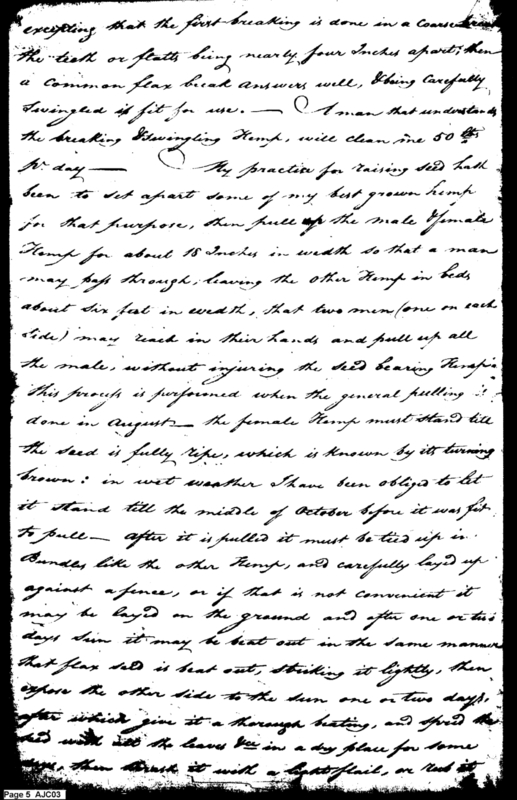 excepting that the first breaking is done in a coarse break
the teeth or flatts being nearly four Inches apart, then
a common flax break answers well, & being carefully
Swingled is fit for use. — A man that understands
the breaking & Swingling Hemp, will clean me 50 lbs
pr day — My practice for raising seed hath
been to set apart some of my best grown hemp
for that purpose, then pull up the male & female
Hemp for about 18 Inches in wedth so that a man
may pass through, leaving the other Hemp in beds
about six feet in wedth, that two men (one on each
side) may reach in their hands and pull up all
the male, without injuring the seed bearing Hemp
this process is performed when the general pulling is
done in August — the female Hemp must stand till
the seed is fully ripe, which is known by its turning
brown: in wet weather I have been obliged to let
it stand till the middle of October before it was fit
to pull — after it is pulled it must be tied up in
Bundles like the other Hemp, and carefully layed up
against a fence, or if that is not convenient it
may be layed on the ground and after one or two
days sun it may be beat out in the same manner
that flax seed is beat out, striking it lightly, then
expose the other side to the sun one or two days,
after which give it a thorough beating, and spred the
seed with all the leaves &c in a dry place for some
days, then thrash it with a light flail, or rub it
Page 5 AJC03